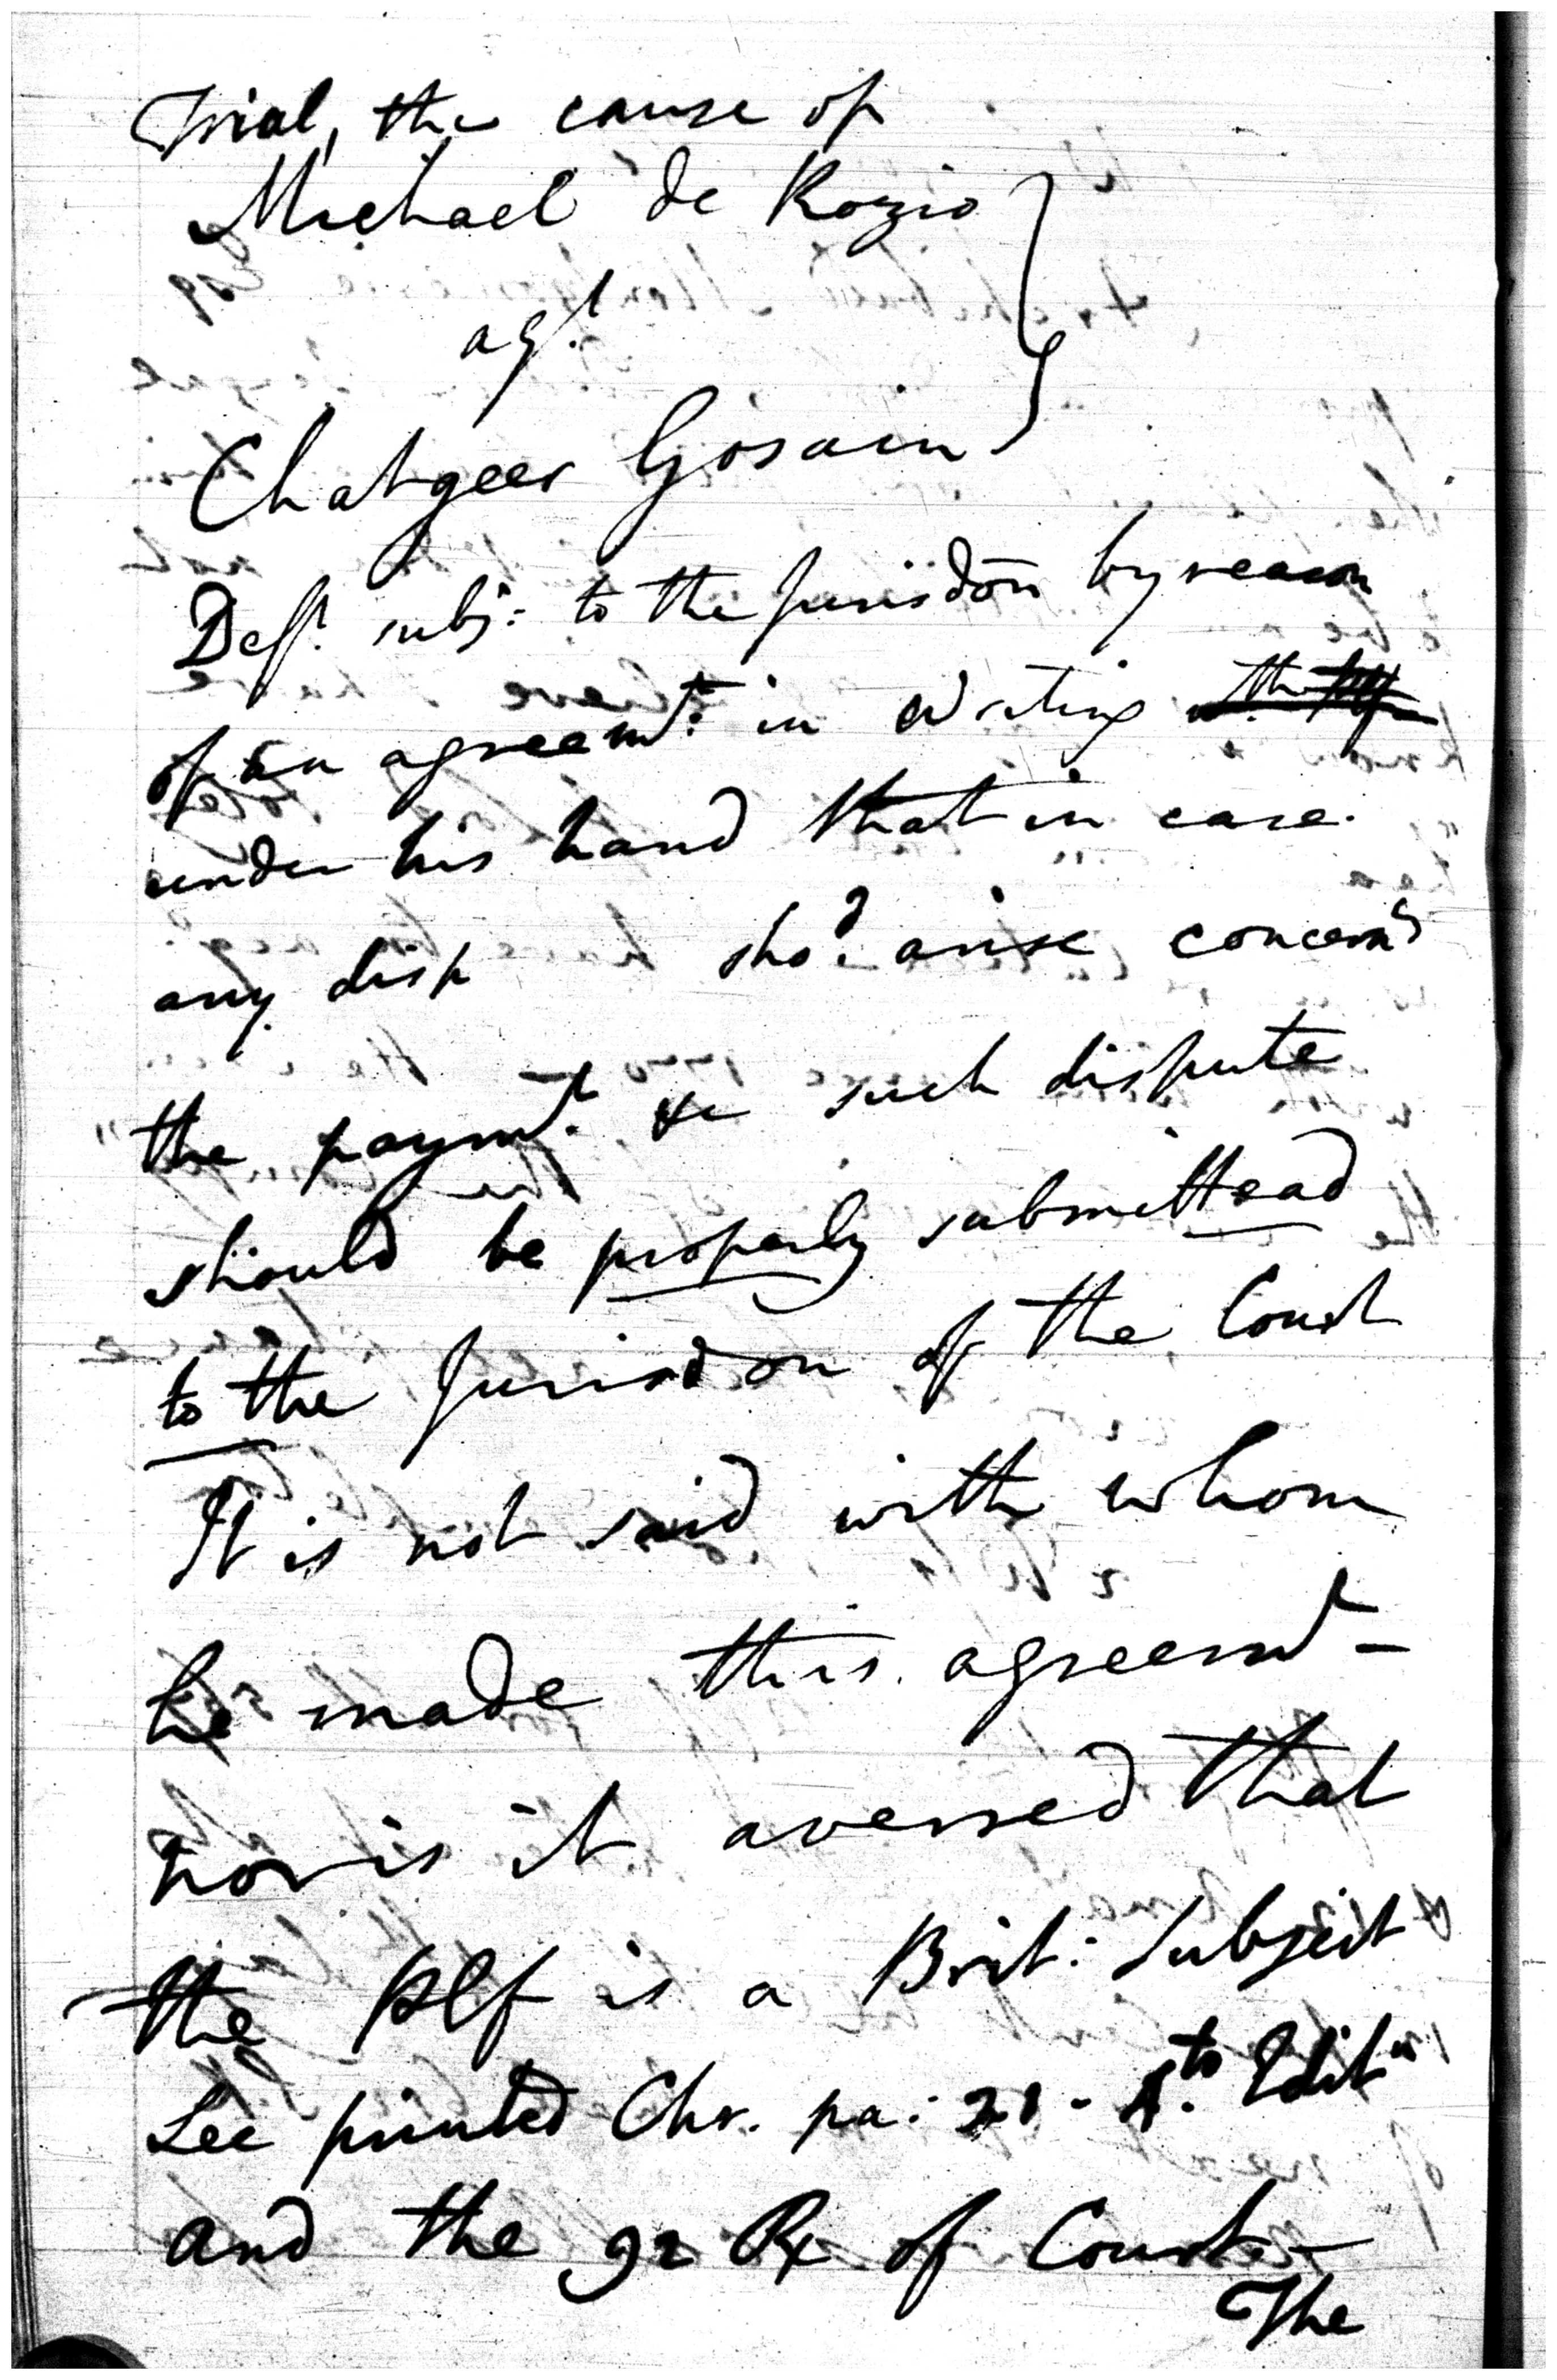 Trial, the cause of
Michael de Rozio
agt.
Chatgeer Gosain
Deft. subj: to the Jurisdōn by reason
of an agreemt. in writing
under his hand that in case
any disp shod. arise concerng
the paymt. &c such dispute
should be properly submittead
to the Jurisdon of the Court
It is not said with whom
he made this agreemt -
nor is it averred that
the Plf is a Brit: Subject
See printed Chr. pa: 21 - 4to. Editn
and the 92 Rx of Court -
The